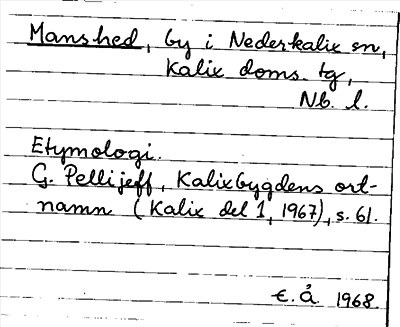 Manshed, by i Nederkalix sn,
Kalix doms. tg,
Nb. l.
Etymologi.
G. Pellijeff, Kalixbygdens ort-
namn (Kalix del 1, 1967), s. 61.
E. Å 1968